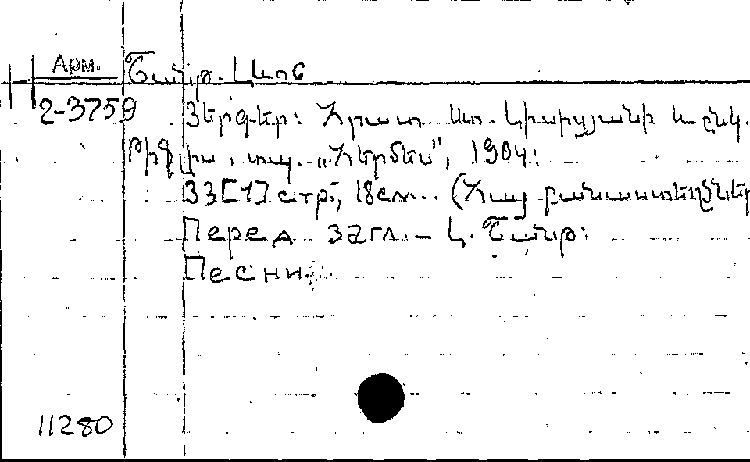 Арм.
Շանթ. Լևոն
2-3759 Յերգեր: Հրատ. Առ. Կիսիբյանի և ընկ.
Թիֆլիս, տպ. „Հերմես", 1904:
33[1] стр., 18см. (Հայ բանաստեղծներ
Перед загл. – Լ. Շանթ:
Песни.
11280